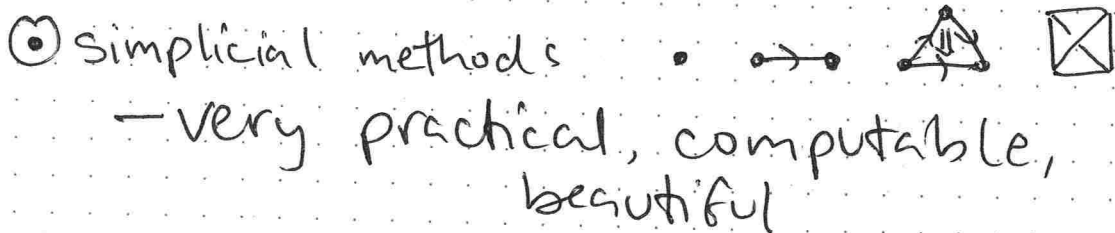 simplicial methods
- very practical, computable,
beautiful